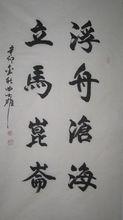 浮舟滄海
立馬崑崙
辛卯